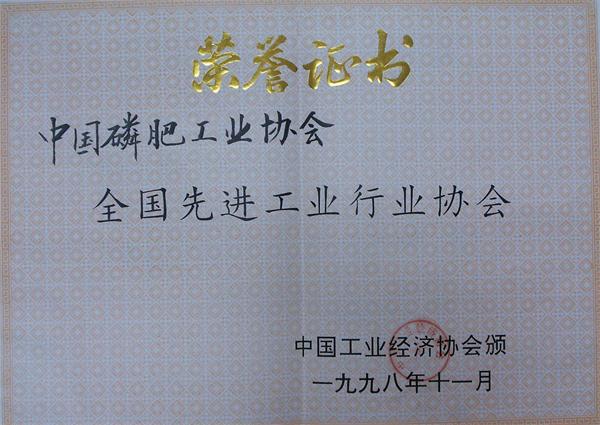 荣誉证书
中国磷肥工业协会
全国先进工业行业协会
中国工业经济协会颁
一九九八年十一月